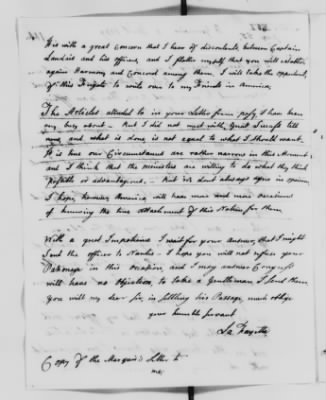 It is with a great Concern that I hear of discontents between Captain
Landais and his officers, and I flatter myself that you will
again Harmony and Concord among them. I will take the opportunity
of this Frigate to write over to my Friends in America.
The Articles alluded to in your Letter from I have been
very busy about — But I did not met with Great Success till
now and what is done is not equal to what I should want.
It is true our Circumstances are rather narrow in this Moment
and I think that the ministers are willing to do what they think
possible or advantageous — But we don't always agree in opinion
I hope, however America will have more and more occasions
of knowing the true Attachment of this Nation for them
With a great Impatience I wait for your answer, that I might
send the officer to Nantes — I hope you will not refuse your
Patronage in this occasion, and I may answer Congress
will have no Objection, to take a Gentleman I send them
you will my dear Sir, in settling his Passage, much oblige
your humble servant
La Fayette
Copy of the Marquis's Letter to
me.